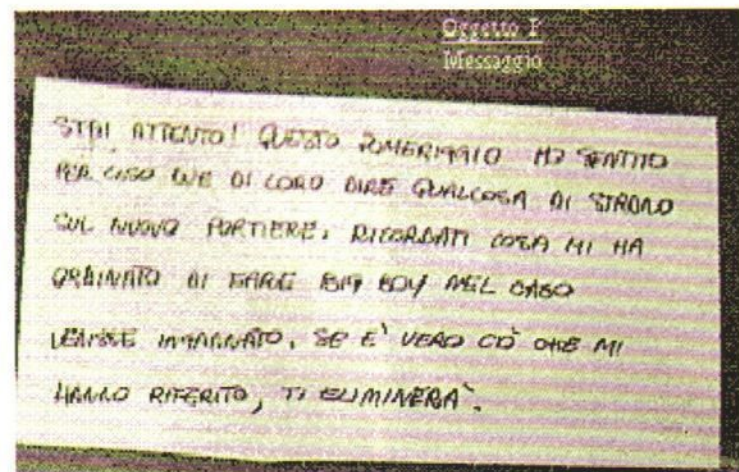 Oggetto I
Messaggio
STAI ATTENTO! QUESTO POMERIGGIO HO SENTITO
PER CASO DUE DI LORO DIRE QUALCOSA DI STRANO
SUL NUOVO PORTIERE. RICORDATI COSA MI HA
ORDINATO DI FARE BIG BOY NEL CASO
VENISSE INGANNATO. SE E' VERO CIÒ CHE MI
HANNO RIFERITO, TI ELIMINERA'.